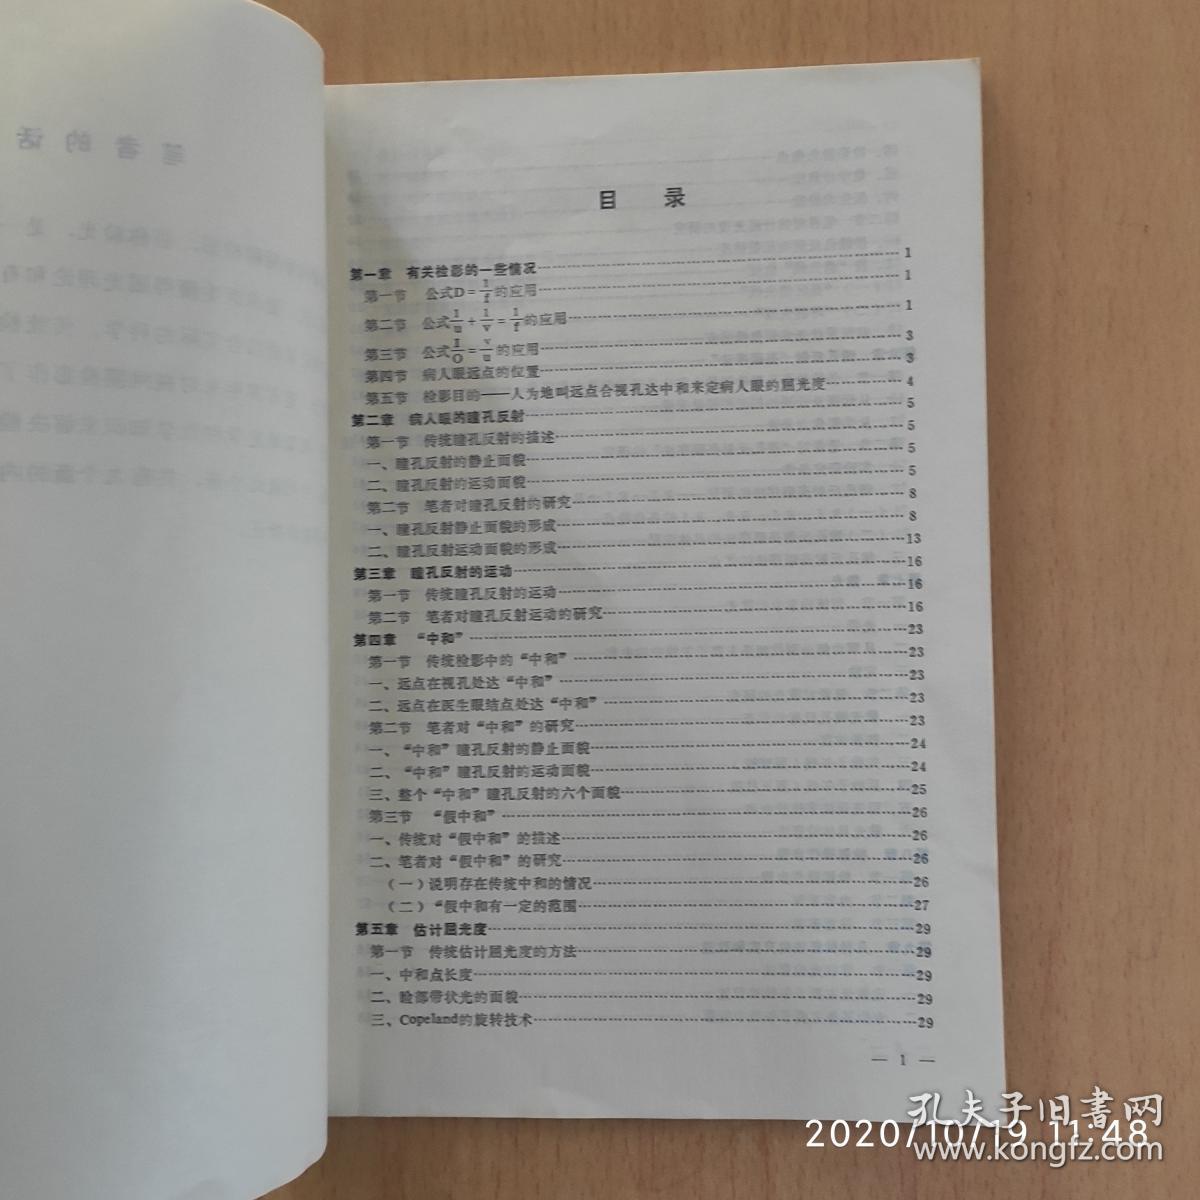 笔者的话
目 录
第一章 有关检影的一些情况……1
第一节 公式D=1/f的应用……1
第二节 公式1/u+1/v=1/f的应用……1
第三节 公式I/O=v/u的应用……3
第四节 病人眼远点的位置……3
第五节 检影目的——人为地叫远点合视孔达中和来定病人眼的屈光度……4
第二章 病人眼的瞳孔反射……5
第一节 传统瞳孔反射的描述……5
一、瞳孔反射的静止面貌……5
二、瞳孔反射的运动面貌……5
第二节 笔者对瞳孔反射的研究……8
一、瞳孔反射静止面貌的形成……8
二、瞳孔反射运动面貌的形成……13
第三章 瞳孔反射的运动……16
第一节 传统瞳孔反射的运动……16
第二节 笔者对瞳孔反射运动的研究……16
第四章 “中和”……23
第一节 传统检影中的“中和”……23
一、远点在视孔处达“中和”……23
二、远点在医生眼结点处达“中和”……23
第二节 笔者对“中和”的研究……23
一、“中和”瞳孔反射的静止面貌……24
二、“中和”瞳孔反射的运动面貌……24
三、整个“中和”瞳孔反射的六个面貌……25
第三节 “假中和”……26
一、传统对“假中和”的描述……26
二、笔者对“假中和”的研究……26
（一）说明存在传统中和的情况……26
（二）“假中和有一定的范围……27
第五章 估计屈光度……29
第一节 传统估计屈光度的方法……29
一、中和点长度……29
二、睑部带状光的面貌……29
三、Copeland的旋转技术……29
— 1 —
孔夫子旧书网
2020/10/19 11:48
www.kongfz.com